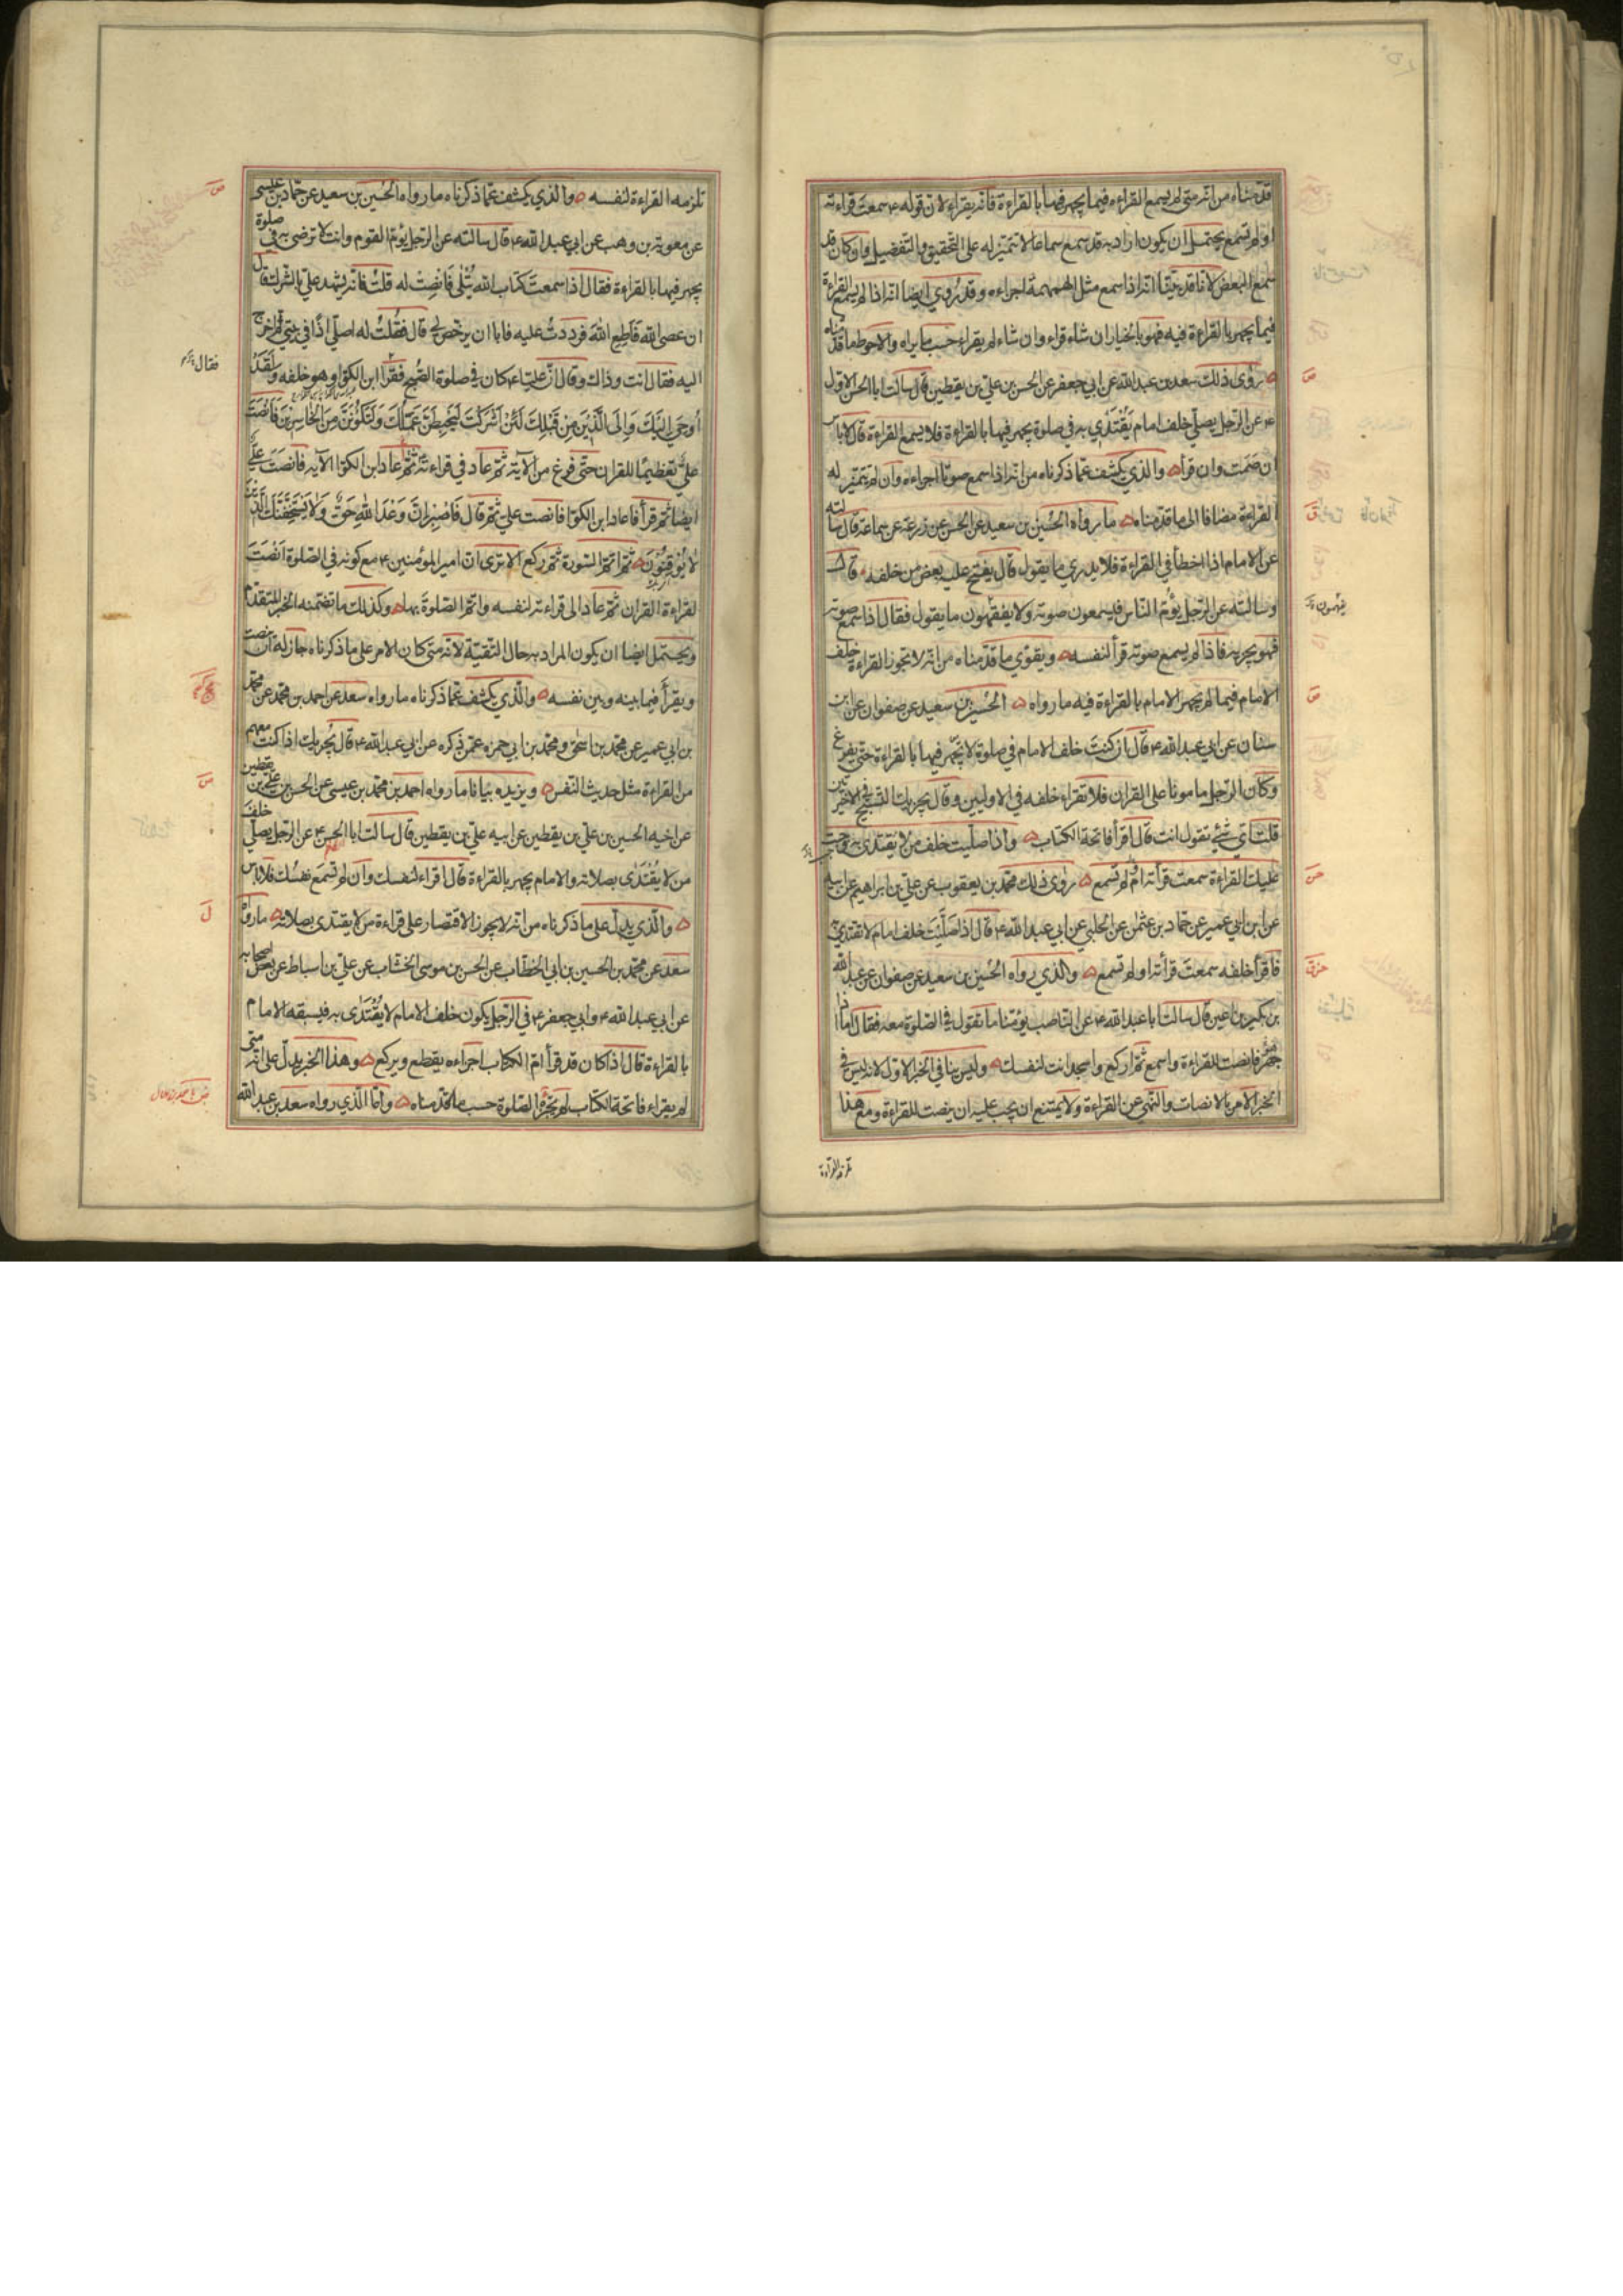 قدمناه من انه متى لم يسمع القراءه فيما يجهر فيها بالقراءة فانه يقراء لان قوله ع سمعت قراءته
اولم تسمع يحتمل ان يكون اراد به قد سمع سماعا لا تتميز له على التحقيق والتفصيل فاو كان قد
سمع البعض لانا قد بينا انه اذا سمع مثل الهمهمة اجزاءه وقد روي ايضا انه اذا لم يسمع القراءة
فيما يجهر بالقراءة فيه فهو بالخيار ان شاء قراء وان شاء لم يقراء حسب ما يراه والاحوط ما قدمناه
روى ذلك سعد بن عبدالله عن ابي جعفر عن الحسن بن علي بن يقطين قال سالت ابا الحسن الاول
ع عن الرجل يصلي خلف امام يقتدي به في صلوة يجهر فيها بالقراءة فلا يسمع القراءة قال لا باس
ان صمت وان قرأ والذي يكشف عما ذكرناه من انه اذا سمع صوتا اجزاءه وان لم تتميز له
القراءة مضافا الى ما قدمناه ما رواه الحسين بن سعيد عن الحسن عن زرعة عن سماعة قال سالته
عن الامام اذا اخطأ في القراءة فلا يدري ما يقول قال يفتح عليه بعض من خلفه قال
وسالته عن الرجل يؤم الناس فيسمعون صوته ولا يفقهون ما يقول فقال اذا سمع صوته
يفهمون
فهو يجزيه فاذا لم يسمع صوته قرأ لنفسه ويقوي ما قدمناه من انه لا تجوز القراءة خلف
الامام فيما لم يجهر الامام بالقراءة فيه ما رواه الحسين بن سعيد عن صفوان عن ابن
سنان عن ابي عبدالله ع قال ان كنت خلف الامام في صلوة لا يجهر فيها بالقراءة حتى يفرغ
وكان الرجل مامونا على القران فلا تقراء خلفه في الاوليين وقال يجزيك التسبيح في الاخيرتين
قلت اي شئ تقول انت قال اقرأ فاتحة الكتاب واذا صليت خلف من لا يقتدى به وجبت
عليك القراءة سمعت قرأته ام لم تسمع روى ذلك محمد بن يعقوب عن علي بن ابراهيم عن ابيه
عن ابن ابي عمير عن حماد بن عثمن عن الحلبي عن ابي عبدالله ع قال اذا صليت خلف امام لا تقتدي به
فاقرأ خلفه سمعت قرأته اولم تسمع والذي رواه الحسين بن سعيد عن صفوان عن عبدالله
بن بكير بن اعين قال سالت ابا عبدالله ع عن الناصب يؤمنا ما تقول في الصلوة معه فقال اما اذا
جهر فانصت للقراءة واسمع ثم اركع واسجد انت لنفسك وليس ينافي الخبر الاول لانه ليس في
الخبر الامر بالانصات والنهي عن القراءة ولا يمتنع ان يجب عليه ان ينصت للقراءة ومع هذا
تلزمه القراءة
تلزمه القراءة لنفسه والذي يكشف عما ذكرناه ما رواه الحسين بن سعيد عن حماد بن عيسى
عن معوية بن وهب عن ابي عبدالله ع قال سالته عن الرجل يؤم القوم وانت لا ترضى به في صلوة
يجهر فيها بالقراءة فقال اذا سمعت كتاب الله يتلى فانصت له قلت فانه يشهد علي بالشرك قال
ان عصى الله فاطع الله فرددت عليه فابا ان يرخص لي قال فقلت له اصلي اذا في بيتي ثم اخرج
اليه فقال انت وذاك وقال ان عليا ع كان في صلوة الصبح فقرأ ابن الكوا وهو خلفه ولقد
فقال
أوحي اليك والى الذين من قبلك لئن اشركت ليحبطن عملك ولتكونن من الخاسرين فانصت
علي تعظيما للقران حتى فرغ من الآية ثم عاد في قراءته ثم عاد ابن الكوا الآيه فانصت علي
ايضا ثم قرأ فاعاد ابن الكوا فانصت علي ثم قال فاصبر ان وعد الله حق ولا يستخفنك الذين
لا يوقنون ثم اتم السورة ثم ركع الا ترى ان امير المؤمنين ع مع كونه في الصلوة انصت
لقراءة القران ثم عاد الى قراءته لنفسه واتم الصلوة بها وكذلك ما تضمنه الخبر المتقدم
ويحتمل ايضا ان يكون المراد به حال التقية لانه متى كان الامر على ما ذكرناه جاز له ان ينصت
ويقرأ فيما بينه وبين نفسه والذي يكشف عما ذكرناه ما رواه سعد عن احمد بن محمد عن محمد
بن ابي عمير عن محمد بن اسحق ومحمد بن ابي حمزه عمن ذكره عن ابي عبدالله ع قال يجزيك اذا كنت معهم
من القراءة مثل حديث النفس ويزيده بيانا ما رواه احمد بن محمد بن عيسى عن الحسن بن علي بن يقطين
عن اخيه الحسين بن علي بن يقطين عن ابيه علي بن يقطين قال سالت ابا الحسن ع عن الرجل يصلي خلف
من لا يقتدى بصلاته والامام يجهر بالقراءة قال اقراء لنفسك وان لم تسمع نفسك فلا باس
والذي يدل على ما ذكرناه من انه لا يجوز الاقتصار على قراءة من لا يقتدى بصلاته ما رواه
سعد عن محمد بن الحسين بن ابي الخطاب عن الحسن بن موسى الخشاب عن علي بن اسباط عن بعض اصحابه
عن ابي عبدالله ع وابي جعفر ع في الرجل يكون خلف الامام لا يقتدى به فيسبقه الامام
بالقراءة قال اذا كان قد قرأ ام الكتاب اجزاءه يقطع ويركع وهذا الخبر يدل على انه متى
لم يقراء فاتحة الكتاب لم تجزه الصلوة حسب ما قدمناه واما الذي رواه سعد بن عبدالله